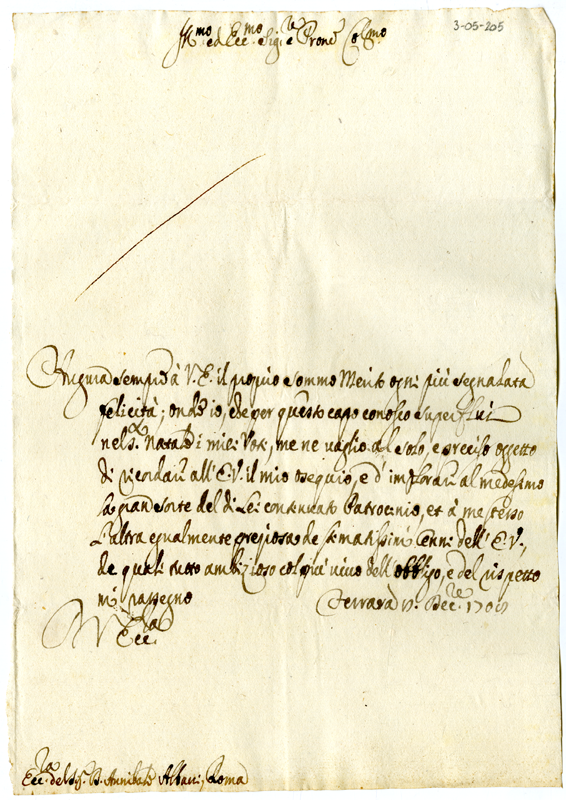 Ill.mo ed Ecc.mo Sig.re e Pron.e Col.mo
3-05-205
Augura sempre à V. E. il proprio sommo Merito ogni più segnalata
felicità; onde io, che per questo capo conosco superflui
nel S. Natale i miei Voti, me ne vaglio al solo, e preciso oggetto
di ricordare all'E.V. il mio ossequio, e d'implorare al medesimo
la grande sorte del di Lei continuato Patrocinio, et à me stesso
l'altra egualmente preziosa de stimatissimi Cenni dell'E.V.,
de quali tutto ambizioso col più vivo dell'obbligo, e del rispetto
mi rassegno
Di V. Ecc.za
Ferrara Dec.re
Ecc.za del Sig. D. Annibale Albani, Roma